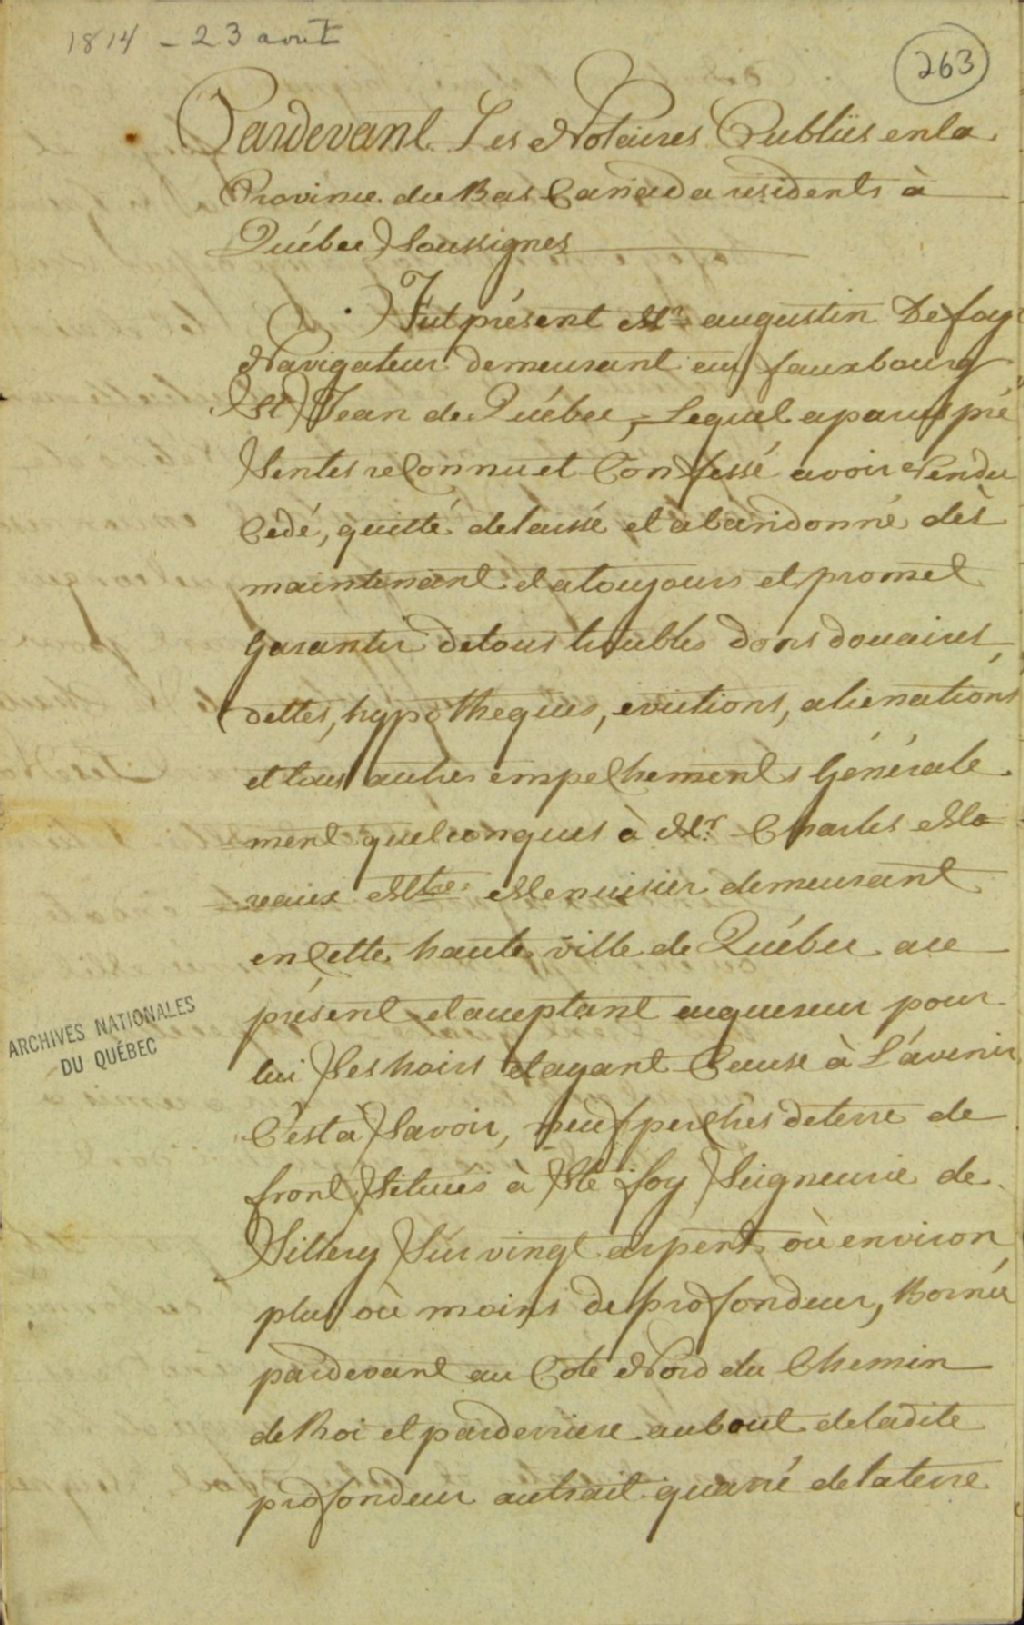 1814 - 23 aout
263
Pardevant Les Notaires Publiis en la
Province du Bas Canada residents à
Québec Soussignes
Fut présent Mr. augustin Defoy
Navigateur demeurant au fauxbourg
St Jean de Québec, Lequel a par ces pré
Sentes reConnu et Confessé avoir vendu
Cedé, quitté delaissé et abandonné dès
maintenant et a toujours et promet
Garantir de tous troubles dons douaires,
dettes, hypotheques, evictions, alienations
et tous autres empeChements Générale
ment quelconques à Mr. Charles Ma
reaux Mtre Menuisier demeurant
en Cette haute ville de Québec a ce
présent et acceptant acquereur pour
lui Ses hoirs et ayant Cause à L'avenir
C'est à Savoir, neuf perches de terre de
front Situés à Ste foy Seigneurie de
Sillery Sur vingt arpents où environ
plus où moins de profondeur, Bornée
pardevant au Coté Nord du Chemin
de Roi et parderriere au bout de ladite
profondeur au trait quarré de la terre
ARCHIVES NATIONALES
DU QUÉBEC